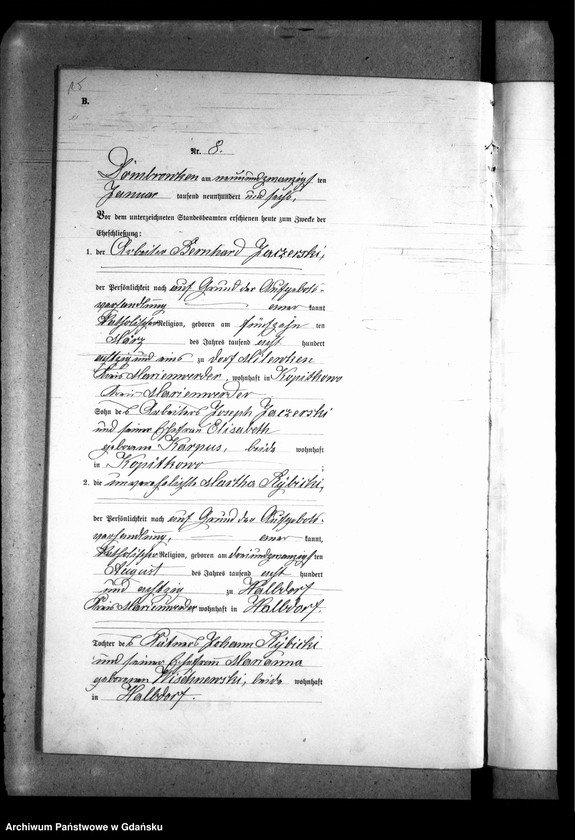 15
B.
Nr. 8.
Dombrowken am neunundzwanzigsten
Januar tausend neunhundert und sechs.
Vor dem unterzeichneten Standesbeamten erschienen heute zum Zwecke der
Eheschließung:
1. der Arbeiter Bernhard Jaczerski,
der Persönlichkeit nach auf Grund der Aufgebots-
verhandlung aner kannt,
katholischer Religion, geboren am fünfzehn ten
März des Jahres tausend acht hundert
achtzig und eins zu Dorf
Kreis Marienwerder, wohnhaft in Kopitkowo
Kreis Marienwerder
Sohn des Arbeiters Joseph Jaczerski
und seiner Ehefrau Elisabeth
geborene Karpus, beide wohnhaft
in Kopitkowo ;
2. die unverehelichte Martha Rybicki,
der Persönlichkeit nach auf Grund der Aufgebots-
verhandlung, aner kannt,
katholischer Religion, geboren am dreiundzwanzigsten
August des Jahres tausend acht hundert
und achtzig zu Halbdorf
Kreis Marienwerder wohnhaft in Halbdorf.
Tochter des Kätners Johann Rybicki
und seiner Ehefrau Marianna
geborenen Wischnewski, beide wohnhaft
in Halbdorf.
Archiwum Państwowe w Gdańsku